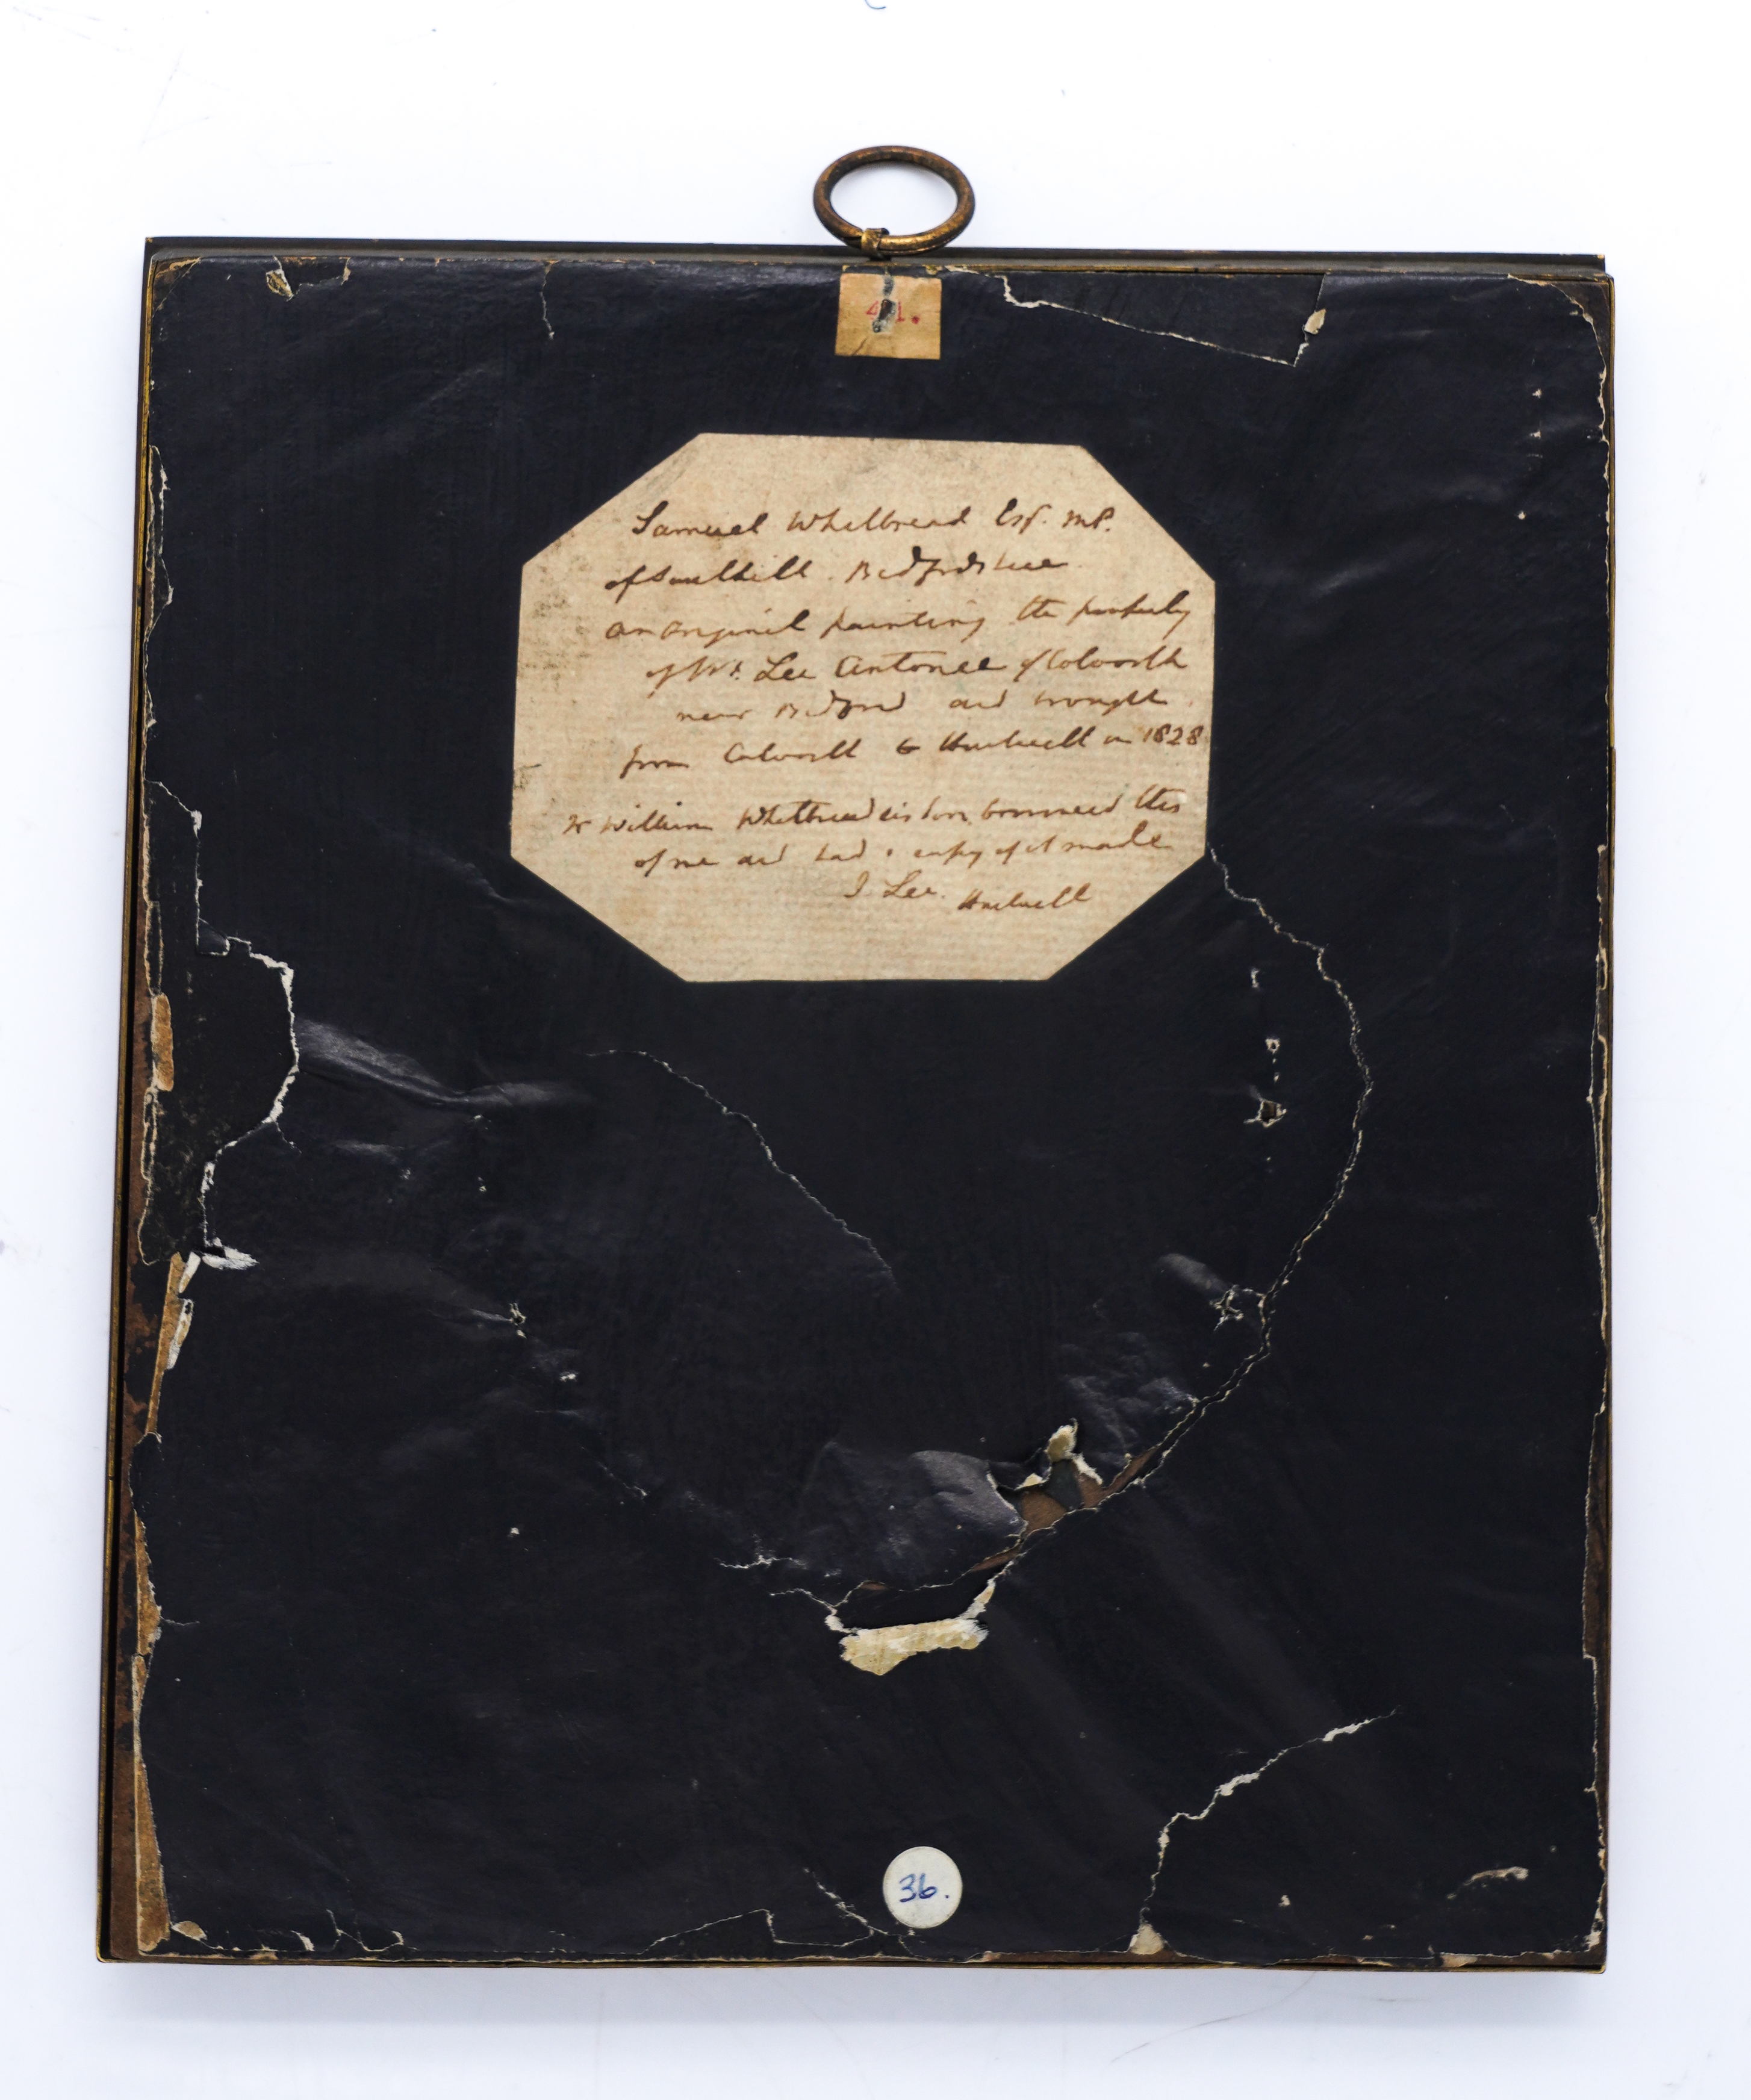 41.
Samuel Whitbread Esqr. MP.
of Southill. Bedfordshire
an original painting the property
of Mr. Lee Antonee of Colworth
near Bedford and brought
from Colworth to Hartwell in 1828
Mr William Whitbread his son borrowed this
of me and had a copy of it made
J Lee. Hartwell
36.